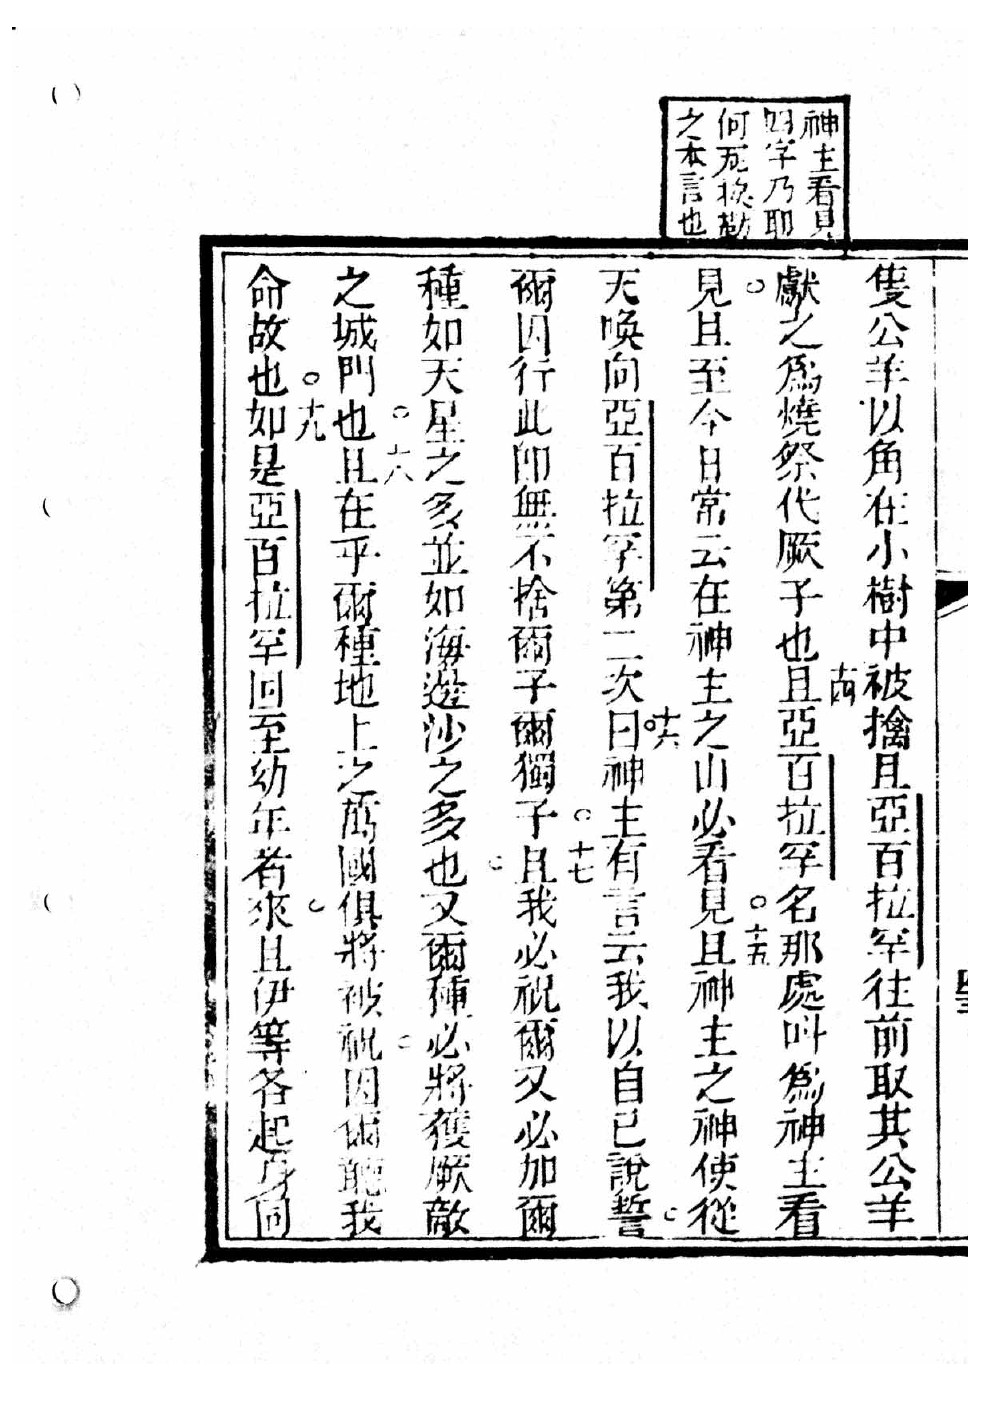 神主看見
四字乃耶
何瓦換勒
之本言也
隻公羊以角在小樹中被擒且亞百拉罕往前取其公羊
獻之爲燒祭代厥子也十四且亞百拉罕名那處叫爲神主看
見且至今日常云在神主之山必看見十五且神主之神使從
天喚向亞百拉罕第二次十六曰神主有言云我以自己說誓
爾因行此卽無不捨爾子爾獨子十七且我必祝爾又必加爾
種如天星之多並如海邊沙之多也又爾種必將獲厥敵
之城門也十八且在乎爾種地上之萬國俱將被祝因爾聽我
命故也十九如是亞百拉罕回至幼年者來且伊等各起身同